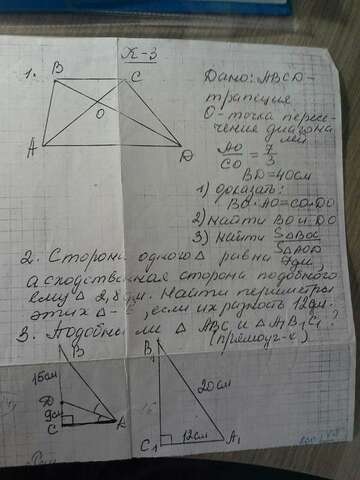 К-3
1.
B
C
O
A
D
Дано: ABCD-
трапеция
О-точка пересе-
чения диагона
лей
AO/CO = 7/3
BD=40см
1) доказать:
BO·AO=CO·DO
2) найти BO и DO
3) найти S△BOC/S△AOD
2. Сторона одного △ равна 7дм,
а сходственная сторона подобного
ему △ 2,8 дм. Найти периметры
этих △-в, если их разность 12см.
3. Подобны ли △ ABC и △ A1B1C1?
(прямоуг-е)
B
15см
D
9см
C
A
B1
20см
C1
12см
A1